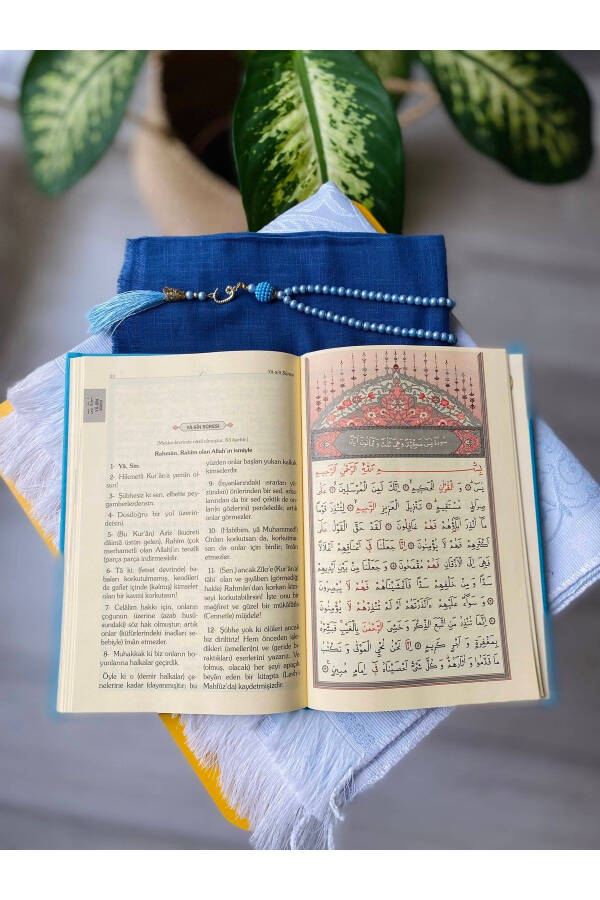 YÂ-SÎN Sûresi
YÂ-SÎN SÛRESİ
Rahmân, Rahîm olan Allah'ın ismiyle
1- Yâ, Sîn.
2- Hikmetli Kur'ân'a yemin ol-
sun!
3- Şübhesiz ki sen, elbette pey-
gamberlerdensin.
4- Dosdoğru bir yol (üzerin-
desin).
5- (Bu Kur'ân) Azîz (kudreti
dâimâ üstün gelen), Rahîm (çok
merhametli olan Allah)'ın tenzîli
(parça parça indirmesi)dir.
6- Tâ ki, (fetret devrinde) baba-
ları korkutulmamış, kendileri
de gaflet içinde (kalmış) kimseler
olan bir kavmi korkutasın!
7- Celâlim hakkı için, onların
çoğunun üzerine (azab husû-
sundaki) söz hak olmuştur; artık
onlar (küfürlerindeki inadları se-
bebiyle) îmân etmezler.
8- Muhakkak ki biz onların bo-
yunlarına halkalar geçirdik.
Öyle ki o (demir halkalar) çe-
nelerine kadar (dayanmıştır; bu
yüzden onlar başları yukarı kalkık
kimselerdir.
9- (İnanmayanlardan)
önlerinden bir sed, arka-
larından da bir sed çektik de on-
ların (gözlerini) perdeledik; artık
onlar görmezler.
10- (Habîbim, yâ Muhammed!)
Onları korkutsan da, korkutma-
san da onlar için birdir; îmân
etmezler.
11- (Sen,) ancak Zikr'e (Kur'ân'a)
tâbi' olan ve gıyâben (görmediği
hâlde) Rahmân'dan korkan kim-
seyi korkutabilirsin! İşte onu bir
mağfiret ve güzel bir mükâfâtla
(Cennetle) müjdele!
12- Şübhe yok ki ölüleri ancak
biz diriltiriz! Hem önceden işle-
dikleri (amellerini) ve (geride bı-
raktıkları) eserlerini yazarız. Ve
(olmuş, olacak) her şeyi apaçık
beyân eden bir kitapta (Levh-i
Mahfûz'da) kaydetmişizdir.
بِسْمِ اللّٰهِ الرَّحْمٰنِ الرَّحِيمِ
يٰسٓ ۝ وَالْقُرْاٰنِ الْحَكِيمِ ۝ اِنَّكَ لَمِنَ الْمُرْسَلِينَ ۝ عَلٰى
صِرَاطٍ مُسْتَقِيمٍ ۝ تَنْزِيلَ الْعَزِيزِ الرَّحِيمِ ۝ لِتُنْذِرَ قَوْمًا
مَا اُنْذِرَ اٰبَاؤُهُمْ فَهُمْ غَافِلُونَ ۝ لَقَدْ حَقَّ الْقَوْلُ عَلٰى
اَكْثَرِهِمْ فَهُمْ لَا يُؤْمِنُونَ ۝ اِنَّا جَعَلْنَا فِى اَعْنَاقِهِمْ اَغْلَالًا
فَهِىَ اِلَى الْاَذْقَانِ فَهُمْ مُقْمَحُونَ ۝ وَجَعَلْنَا مِنْ بَيْنِ اَيْدِيهِمْ
سَدًّا وَمِنْ خَلْفِهِمْ سَدًّا فَاَغْشَيْنَاهُمْ فَهُمْ لَا يُبْصِرُونَ
۝ وَسَوَاءٌ عَلَيْهِمْ ءَاَنْذَرْتَهُمْ اَمْ لَمْ تُنْذِرْهُمْ لَا يُؤْمِنُونَ
۝ اِنَّمَا تُنْذِرُ مَنِ اتَّبَعَ الذِّكْرَ وَخَشِىَ الرَّحْمٰنَ بِالْغَيْبِ فَبَشِّرْهُ
بِمَغْفِرَةٍ وَاَجْرٍ كَرِيمٍ ۝ اِنَّا نَحْنُ نُحْيِى الْمَوْتٰى وَنَكْتُبُ
مَا قَدَّمُوا وَاٰثَارَهُمْ وَكُلَّ شَىْءٍ اَحْصَيْنَاهُ فِى اِمَامٍ مُبِينٍ ۝